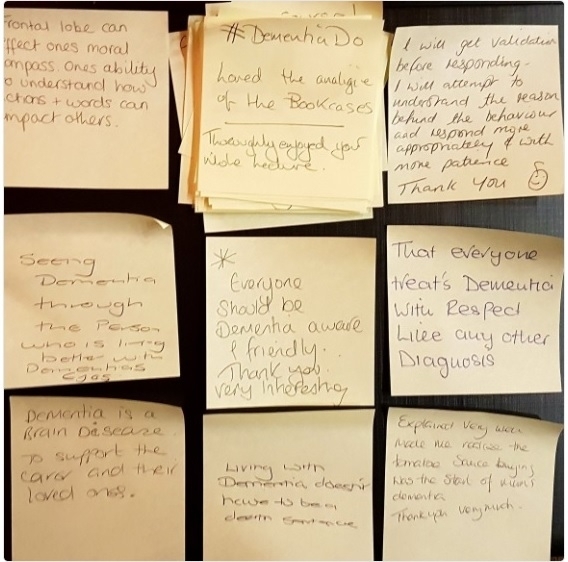 rontal lobe can
ffect ones moral
ompass. Ones ability
o understand how
ctions + words can
mpact others.
#DementiaDo
Loved the analigie
of the Bookcases
Thoroughly enjoyed your
whole lecture.
I will get validation
before responding.
I will attempt to
understand the reason
behind the behaviour
and respond more
appropriately & with
more patience
Thank You
Seeing
Dementia
through
the Person
who is living
better with
Dementias
Eyes
*
Everyone
should be
Dementia aware
& friendly.
Thank you.
very interesting
That everyone
treat's Dementia
with Respect
Like any other
Diagnosis
Dementia is a
Brain Disease.
To support the
carer and their
loved ones.
Living with
Dementia doesn't
have to be a
death sentence
Explained very well
made me realise the
tomatoe sauce buying
was the start of mum's
dementia
Thankyou very much.